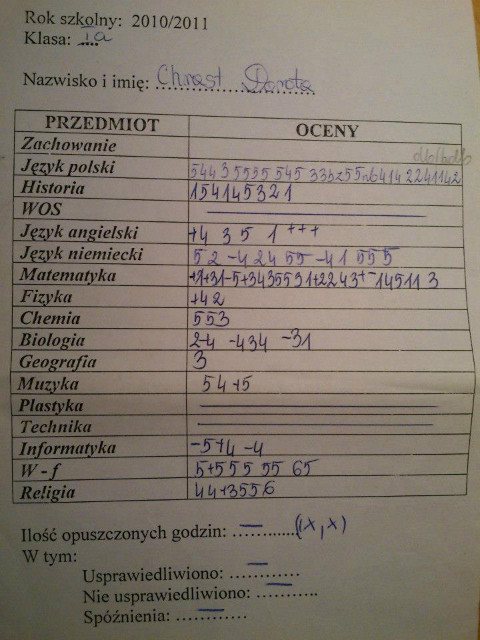 Rok szkolny: 2010/2011
Klasa: Ia
Nazwisko i imię: Chrast Dorota
PRZEDMIOT OCENY
Zachowanie
Język polski 54435535 545 33bz55nb4142241142
Historia 154145321
WOS —
Język angielski +4 3 5 1 +++
Język niemiecki 5 2 -4 2 4 55 -41 555
Matematyka +1+31-5+3435531+2243+-14511 3
Fizyka +42
Chemia 553
Biologia 2-4 -434 -31
Geografia 3
Muzyka 54+5
Plastyka —
Technika —
Informatyka -5+4 -4
W - f 5+555 55 65
Religia 44+3556
Ilość opuszczonych godzin: — ............(IX, X)
W tym:
Usprawiedliwiono: — ............
Nie usprawiedliwiono: — ..........
Spóźnienia: — ............